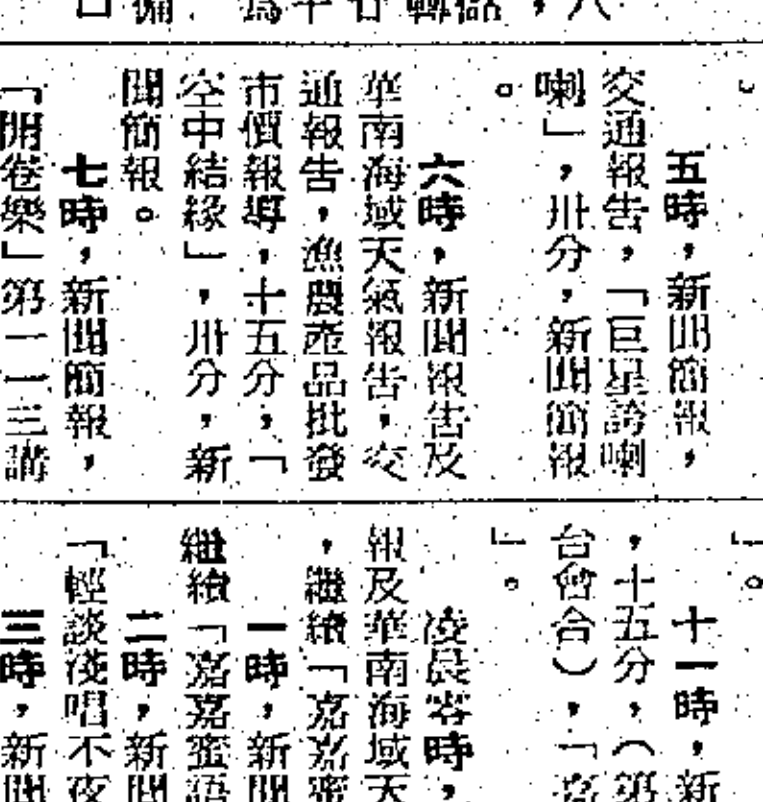 五時，新聞簡報，
交通報告，「巨星誇喇
喇」，卅分，新聞簡報
。
六時，新聞報告及
華南海域天氣報告，交
通報告，漁農產品批發
市價報導，十五分，「
空中結緣」，卅分，新
聞簡報。
七時，新聞簡報，
「開卷樂」第一一三講
」。
十一時，新
，十五分，（第
台會合），「嘉
」。
凌晨零時，
報及華南海域天
，繼續「嘉嘉蜜
一時，新聞
繼續「嘉嘉蜜語
二時，新聞
「輕談淺唱不夜
三時，新聞